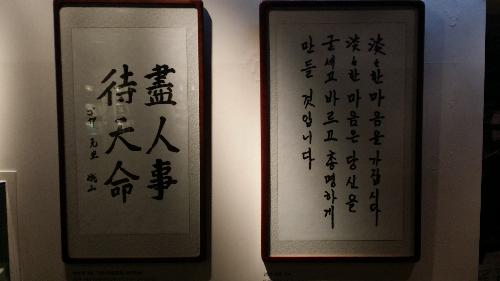 盡人事
待天命
淡淡한 마음을 가집시다
淡淡한 마음은 당신을
굳세고 바르고 총명하게
만들 것입니다